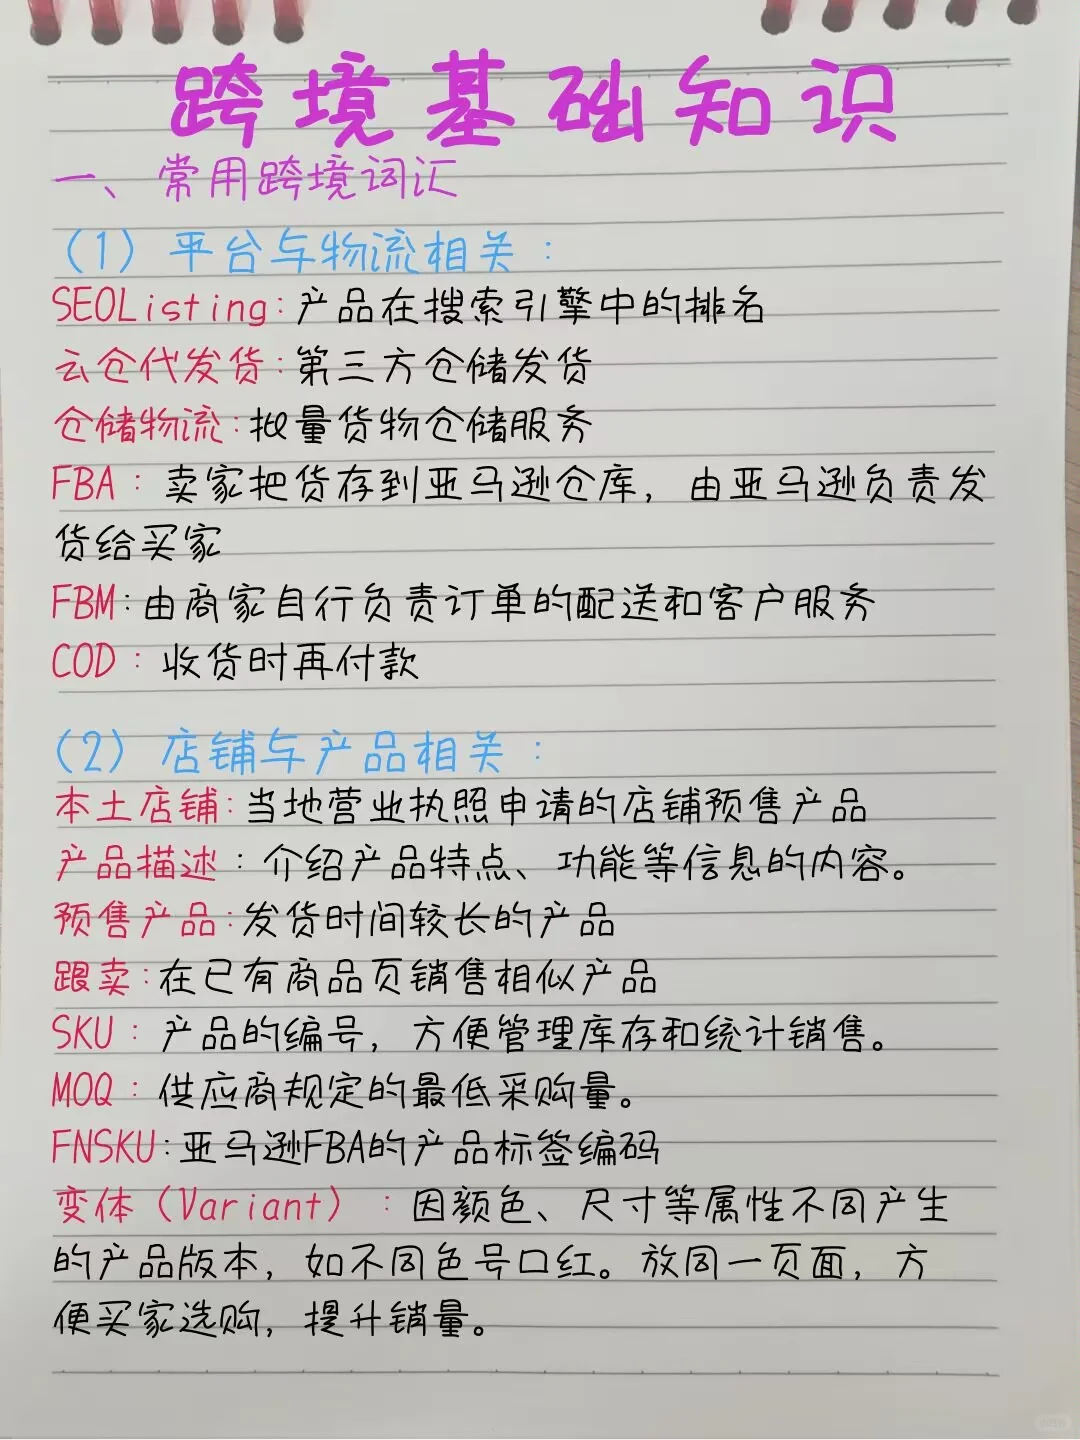 跨境基础知识
一、常用跨境词汇
（1）平台与物流相关：
SEOListing:产品在搜索引擎中的排名
云仓代发货:第三方仓储发货
仓储物流:批量货物仓储服务
FBA：卖家把货存到亚马逊仓库，由亚马逊负责发
货给买家
FBM:由商家自行负责订单的配送和客户服务
COD：收货时再付款
（2）店铺与产品相关：
本土店铺:当地营业执照申请的店铺预售产品
产品描述：介绍产品特点、功能等信息的内容。
预售产品:发货时间较长的产品
跟卖:在已有商品页销售相似产品
SKU：产品的编号，方便管理库存和统计销售。
MOQ：供应商规定的最低采购量。
FNSKU:亚马逊FBA的产品标签编码
变体（Variant）：因颜色、尺寸等属性不同产生
的产品版本，如不同色号口红。放同一页面，方
便买家选购，提升销量。